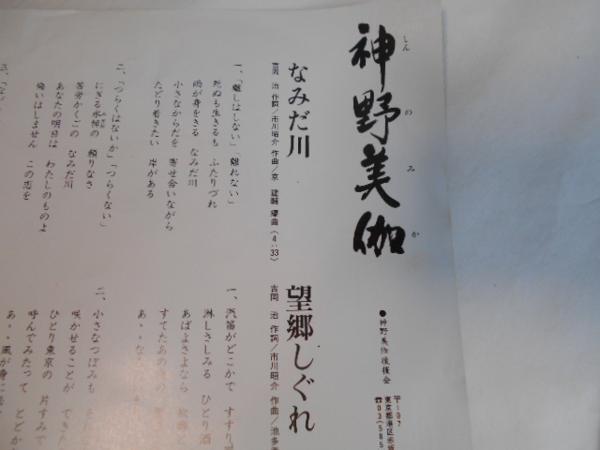 神野美伽
しんのみか
●神野美伽後援会
〒107
東京都港区赤坂
☎03(585
なみだ川
吉岡 治 作詞/市川昭介 作曲/京 建輔 編曲(4:33)
一、「離しはしない」「離れない」
死ぬも生きるも ふたりづれ
雨が身をきる なみだ川
小さなからだを 寄せ合いながら
たどり着きたい 岸がある
二、「つらくはないか」「つらくない」
にぎる水棹の 頼りなさ
苦労かくごの なみだ川
あなたの明日は わたしのものよ
悔いはしません この恋を
三、「な
望郷しぐれ
吉岡 治 作詞/市川昭介 作曲/池多
一、汽笛がどこかで すすり
淋しさしみる ひとり酒
あばよさよなら 故郷
すてたあの
あ・・な
二、小さなつぼみも
咲かせることが できた
ひとり東京の 片すみで
呼んでみたって とどか
あ・・風が身に